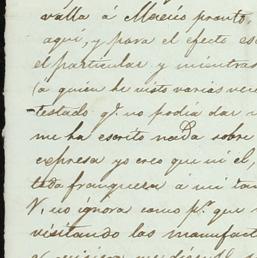 valla á Moreno pronto,
aquí, y para el efecto es
el particular y mientras
(a quien he visto varias vece
testado qe. no podia dar
me ha escrito nada sobre
expresa yo creo que ni el,
toda franqueza á mi
V, no ignora como pr. que
visitando las manufact